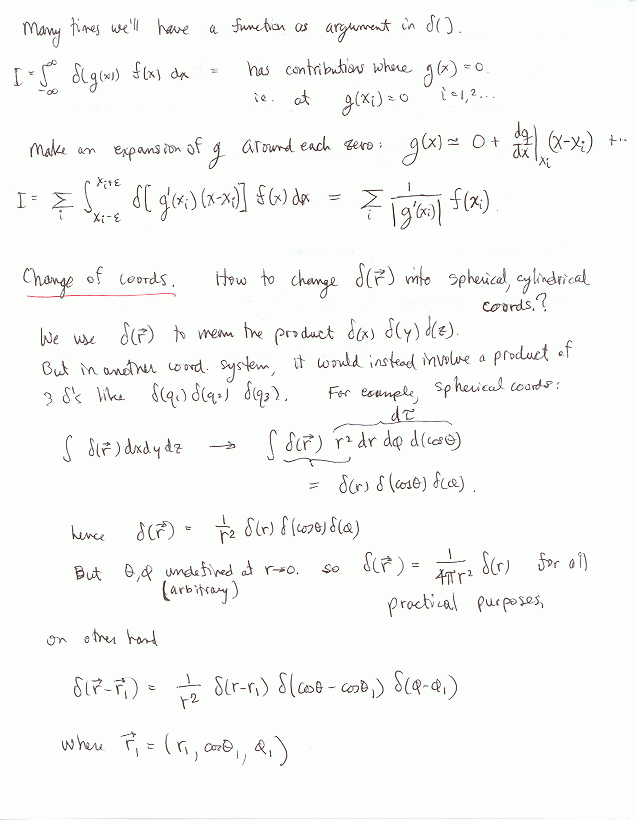 Many times we'll have a function as argument in δ( ).
I = ∫_{-∞}^{∞} δ(g(x)) f(x) dx = has contributions where g(x) = 0.
ie. at g(xᵢ) = 0 i = 1, 2 ...
Make an expansion of g around each zero: g(x) ≃ 0 + dg/dx|_{xᵢ} (x-xᵢ) + ...
I = Σᵢ ∫_{xᵢ-ε}^{xᵢ+ε} δ[ g'(xᵢ) (x-xᵢ)] f(x) dx = Σᵢ 1/|g'(xᵢ)| f(xᵢ)
Change of coords. How to change δ(r⃗) into spherical, cylindrical
coords.?
We use δ(r⃗) to mean the product δ(x) δ(y) δ(z).
But in another coord. system, it would instead involve a product of
3 δ's like δ(q₁) δ(q₂) δ(q₃). For example, spherical coords:
dτ
∫ δ(r⃗) dxdydz → ∫ δ(r⃗) r² dr dφ d(cosθ)
= δ(r) δ(cosθ) δ(φ).
hence δ(r⃗) = 1/r² δ(r) δ(cosθ) δ(φ)
But θ, φ undefined at r→0. so δ(r⃗) = 1/4πr² δ(r) for all
(arbitrary) practical purposes,
on other hand
δ(r⃗-r⃗₁) = 1/r² δ(r-r₁) δ(cosθ - cosθ₁) δ(φ-φ₁)
where r⃗₁ = (r₁, cosθ₁, φ₁)